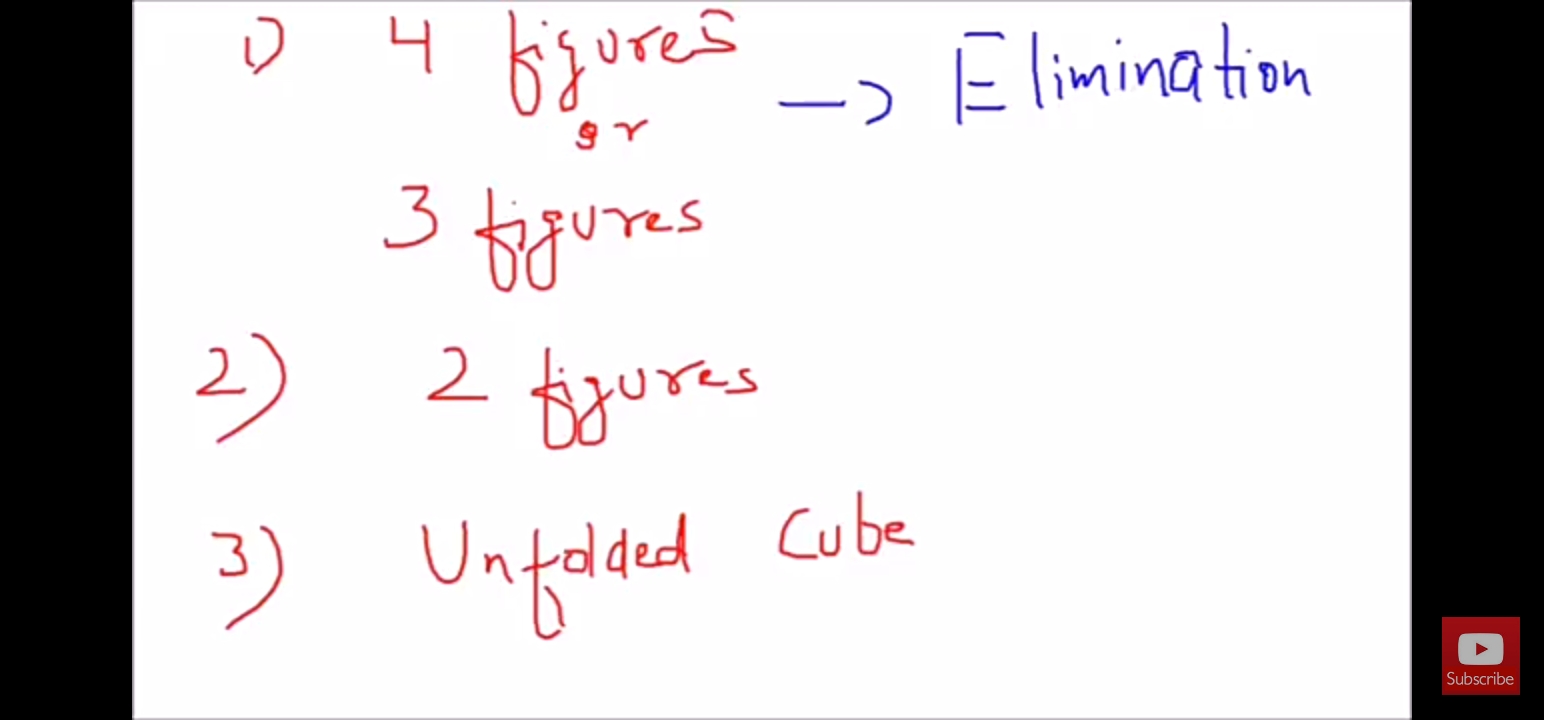 1) 4 figures → Elimination
or
3 figures
2) 2 figures
3) Unfolded Cube
Subscribe